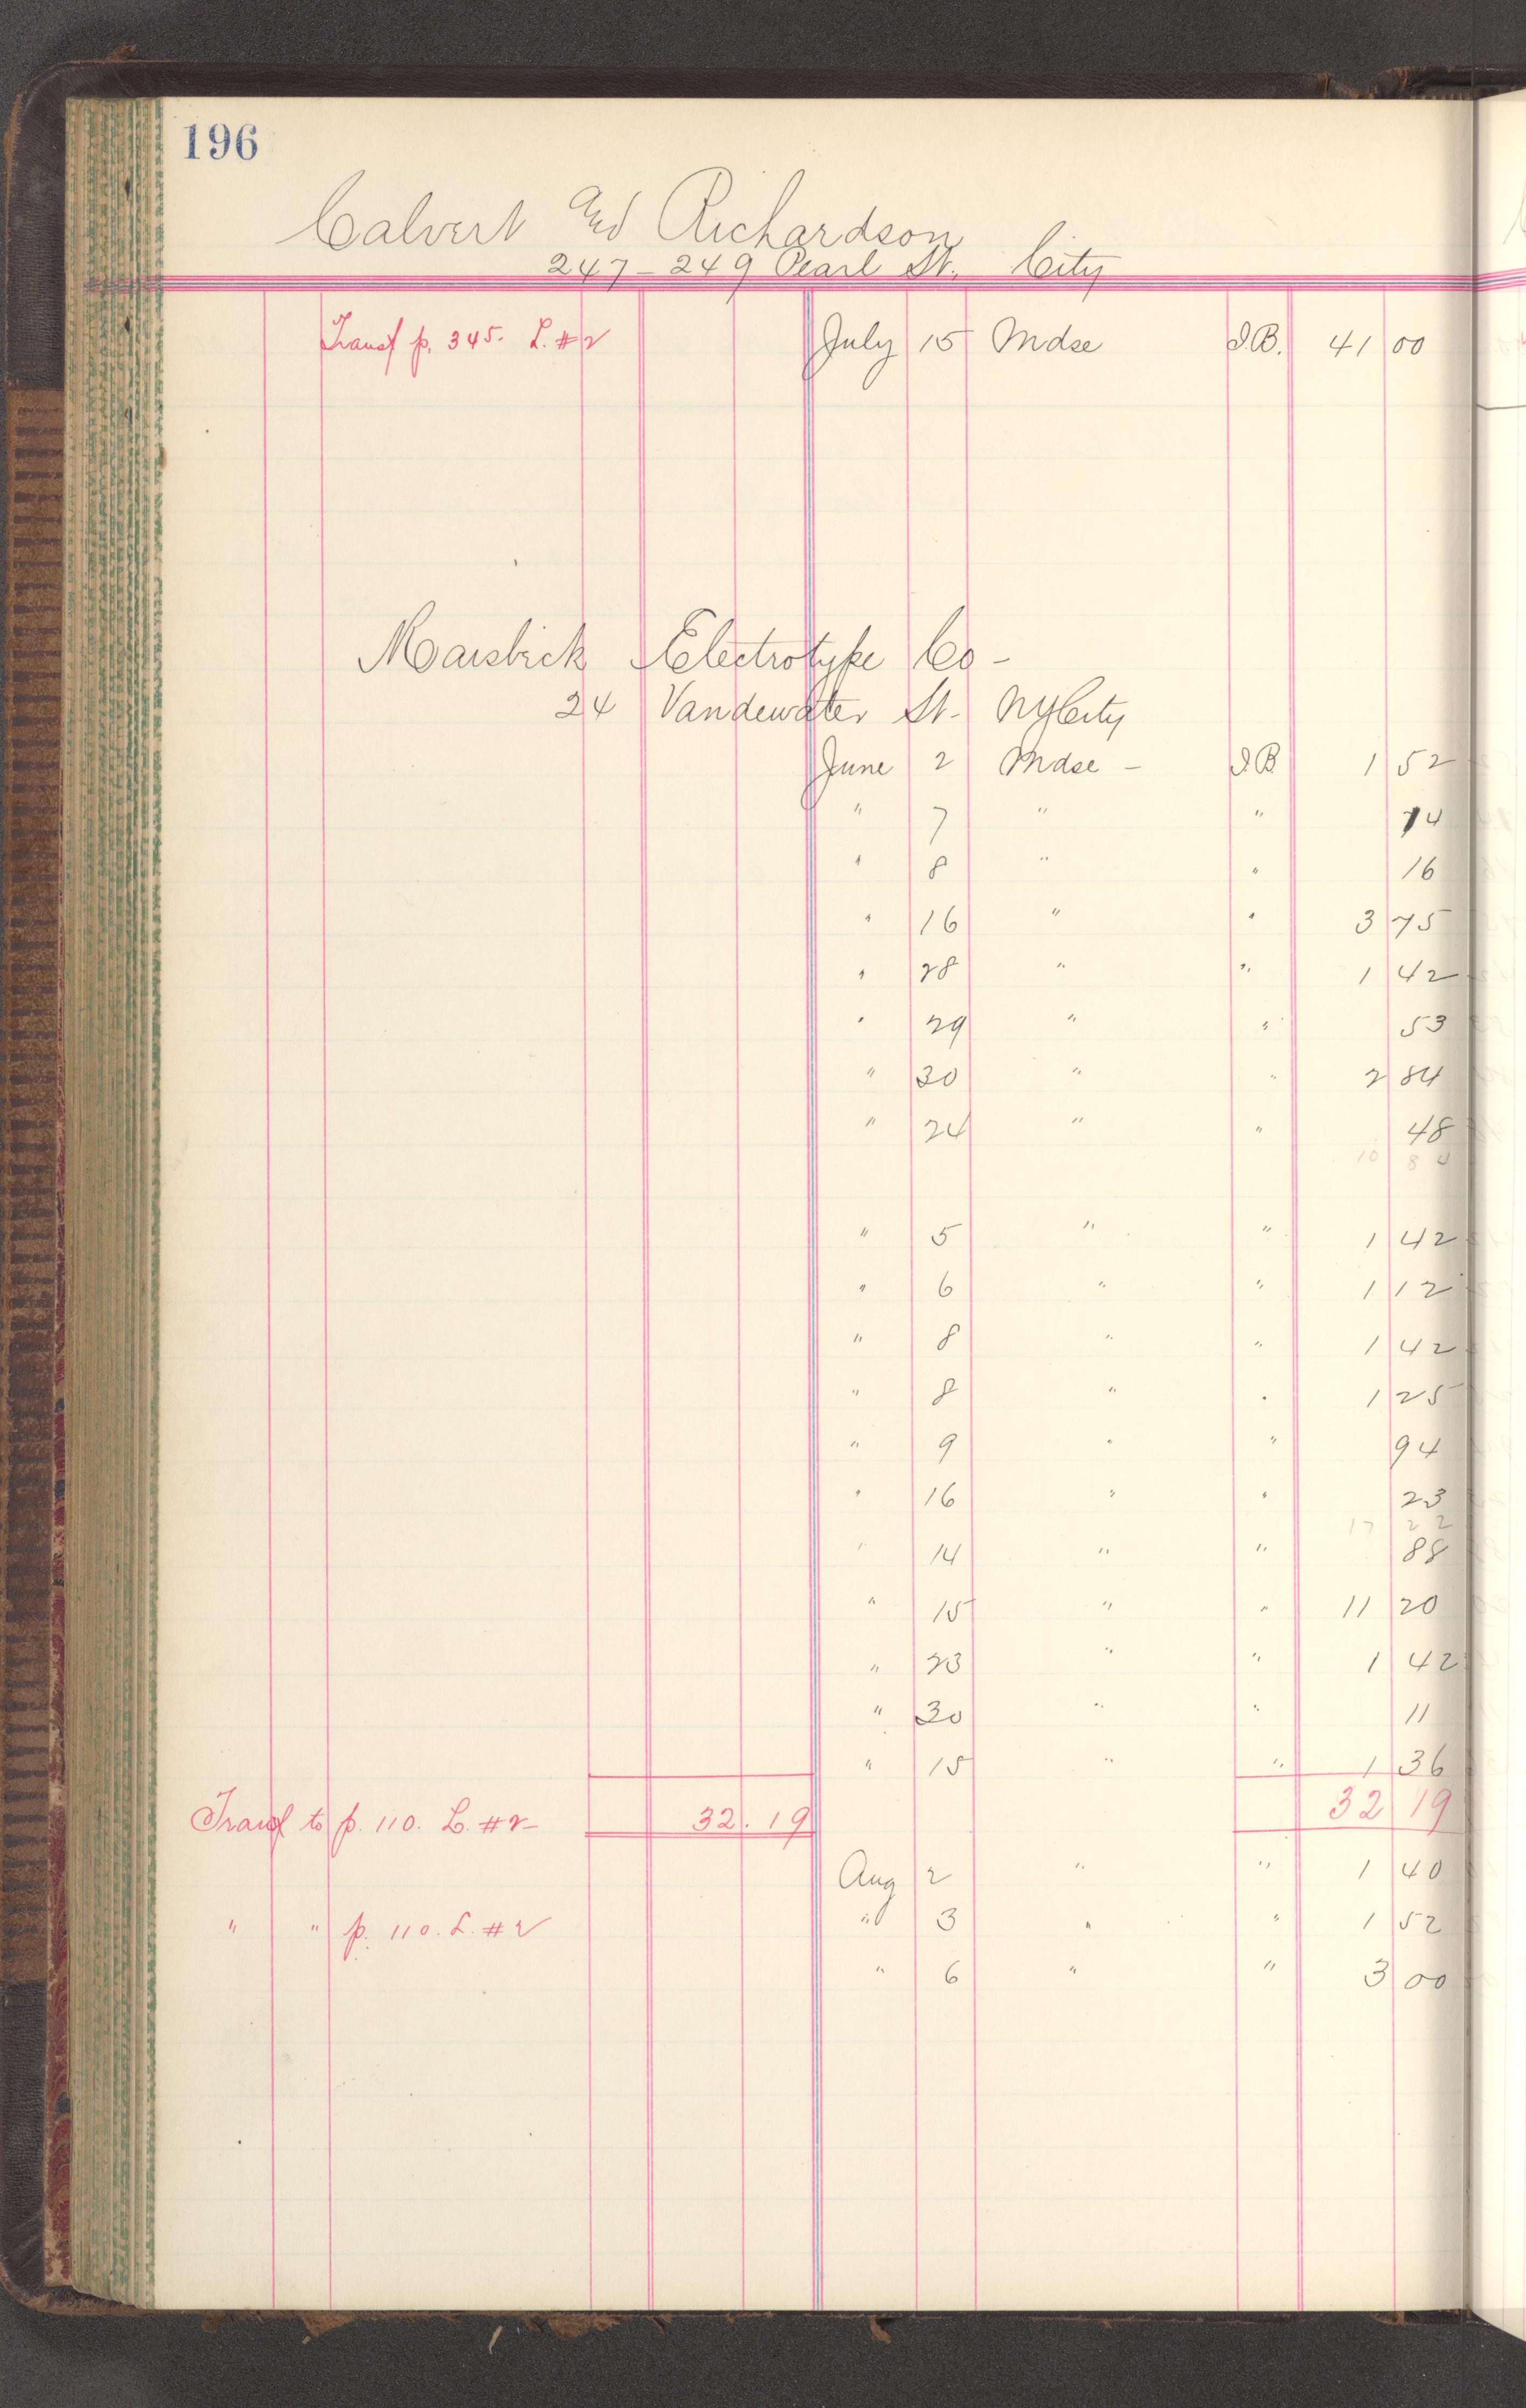 196
Calvert and Richardson
247-249 Pearl St. City
Transf p. 345. L. #2 July 15 Mdse I.B. 41 00
Electrotype Co-
24 Vandewater St- NYCity
June 2 Mdse - I.B. 1 52
" 7 " " 14
" 8 " " 16
" 16 " " 3 75
" 28 " " 1 42
" 29 " " 53
" 30 " " 2 84
" 24 " " 48
10 84
" 5 " " 1 42
" 6 " " 1 12
" 8 " " 1 42
" 8 " " 1 25
" 9 " " 94
" 16 " " 23
17 22
" 14 " " 88
" 15 " " 11 20
" 23 " " 1 42
" 30 " " 11
" 15 " " 1 36
Transf to p. 110. L. #2- 32.19 32 19
Aug 2 " " 1 40
" " p. 110. L. #2 " 3 " " 1 52
" 6 " " 3 00